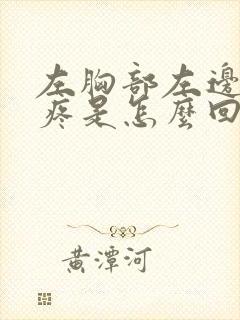 左胸部左邊
疼是怎麼回
黃潭河